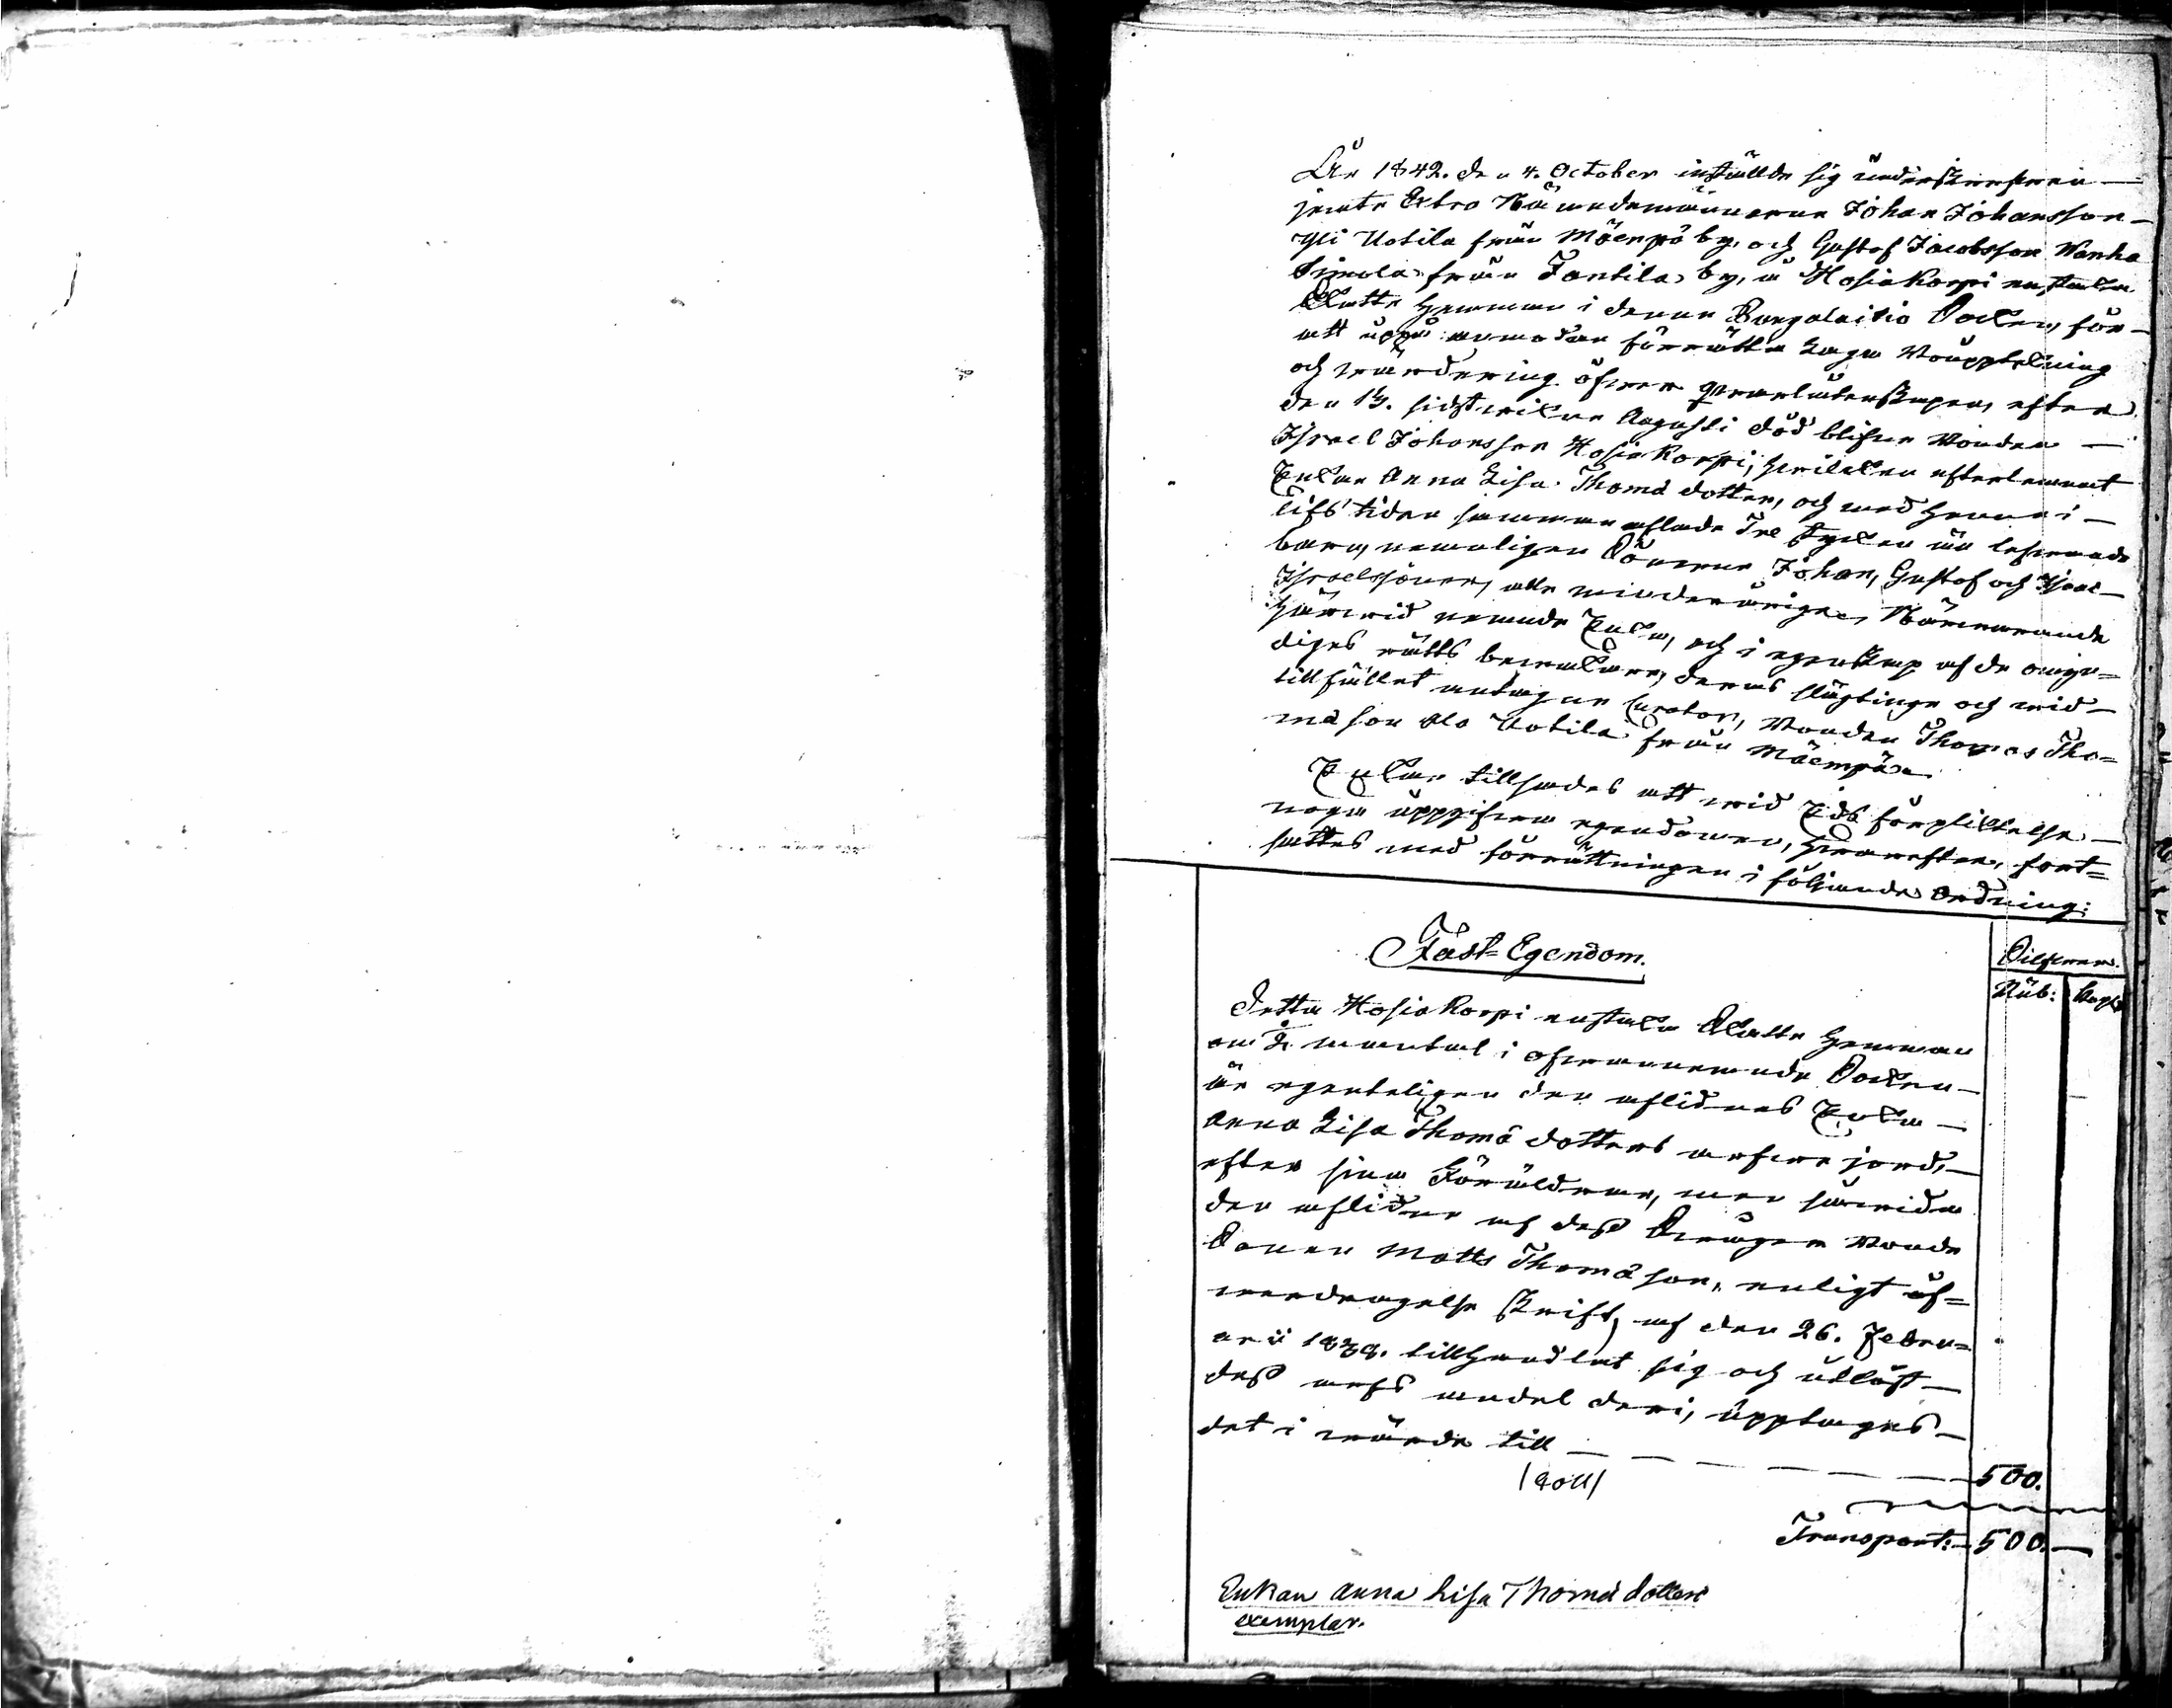 År 1842. den 4. October instälde sig underskrefven —
jemte Extra Nämndemännerne Johan Johansson —
Yli Uotila från Mäenpä by, och Gustaf Jacobsson Wanha
Simola från Tantila by, å Hosiakorpi enstaka
Skatte Hemman i denna Bengalaitio Socken, för —
att uppå anmodan förrätta laga Bouppteckning
och wärdering öfwer qwarlåtenskapen, efter
den 13. sidstwikne Augusti död blifne Bonden —
Isral Johansson Hosiakorpi, hwilken efterlemnat
Enkan Anna Lisa Thomä dotter, och med henne i —
lifstiden sammanaflade Tre stycken än lefwande
barn, nemnligen Sönerne Johan, Gustaf och Isral —
Israelssöner, alle minderårige. Närwarande
härwid nemnde Enka, och i egenskap af de omyn=
diges rätts bewakare, deras slägtinge och wid —
tillfället antagne Curator, Bonden Thomas Tho=
mä son Ala Uotila från Mäenpää.
Enkan tillsades att wid Eds förpliktelse —
noga uppgifwa egendomen, hwarefter, fort=
sattes med förrättningen i följande Ordning:
Fast=Egendom.
Silfwer.
Rub: Kop:
Detta Hosiakorpi enstaka Skatte Hemman
om mantal i ofwannemnde Socken —
är egenteligen den aflidnes Enka —
Anna Lisa Thomä dotters arfwe jord, —
efter sina Föräldrar, men sedan
den aflidne af dess Swåger Bonde
Sonen Matts Thomä son, enligt öf=
werdragelse skrift, af den 26. Febru=
arii 1838. tillhandlat sig och utlöst —
dess arfs andel deri, upptages —
det i wärde till — — — — — — 500.
Transport: — 500. —
Enkan Anna Lisa Thomä dotters
exemplar.